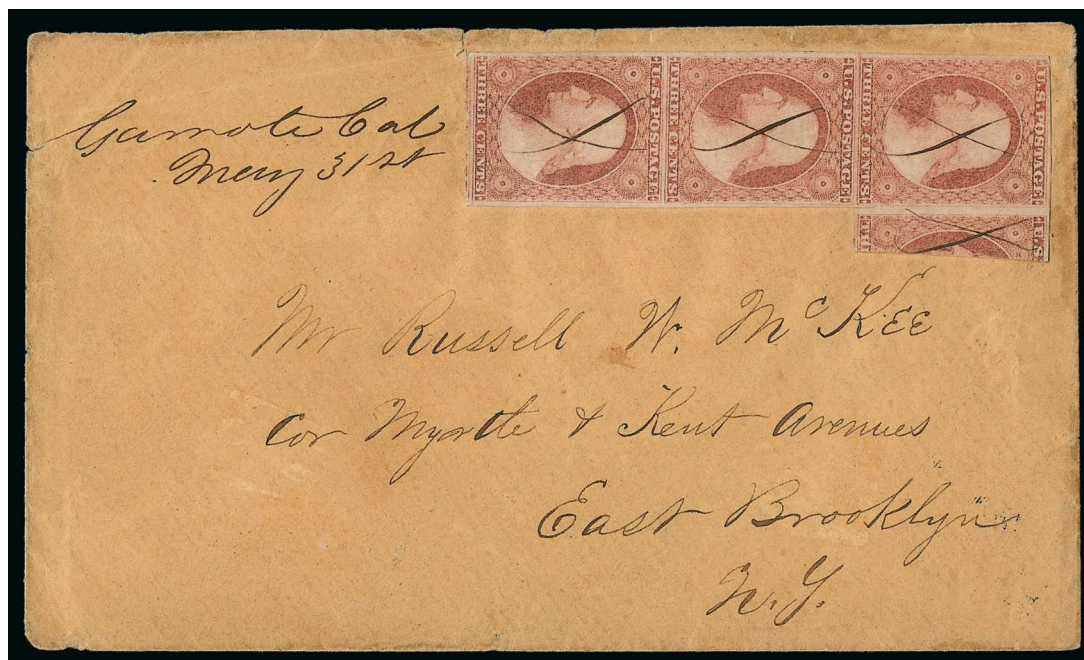 Garrote Cal
May 31st
THREE CENTS U.S. POSTAGE THREE CENTS U.S. POSTAGE THREE CENTS U.S. POSTAGE
THR U.S.
Mr Russell W. McKEE
Cor Myrtle & Kent Avenues
East Brooklyn
N.Y.